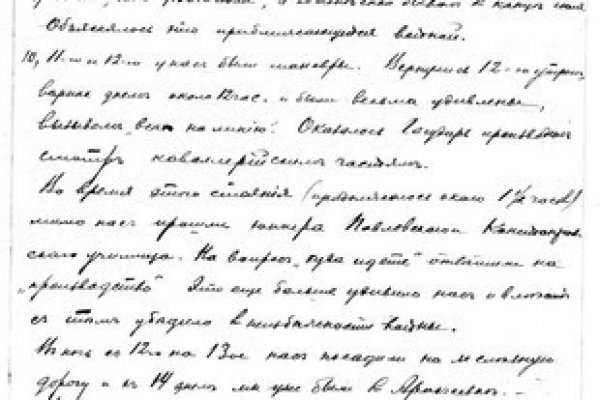 Объяснялось это приближающейся войной.
10, 11-го и 12-го у нас были маневры. Вернулись 12-го утром,
вернее днем около 12 час. и были весьма удивлены,
вызовом "всех на линию". Оказалось Государь производил
смотр кавалерийским частям.
Во время этого стояния (продолжалось около 1½ часов)
мимо нас прошли юнкера Павловского и Константинов-
ского училища. На вопрос "куда идете" ответили на
"производство" Это еще больше удивило нас и вместе
с тем убедило в неизбежности войны.
В ночь с 12го на 13ое нас посадили на железную
дорогу и с 14 днем мы уже были в